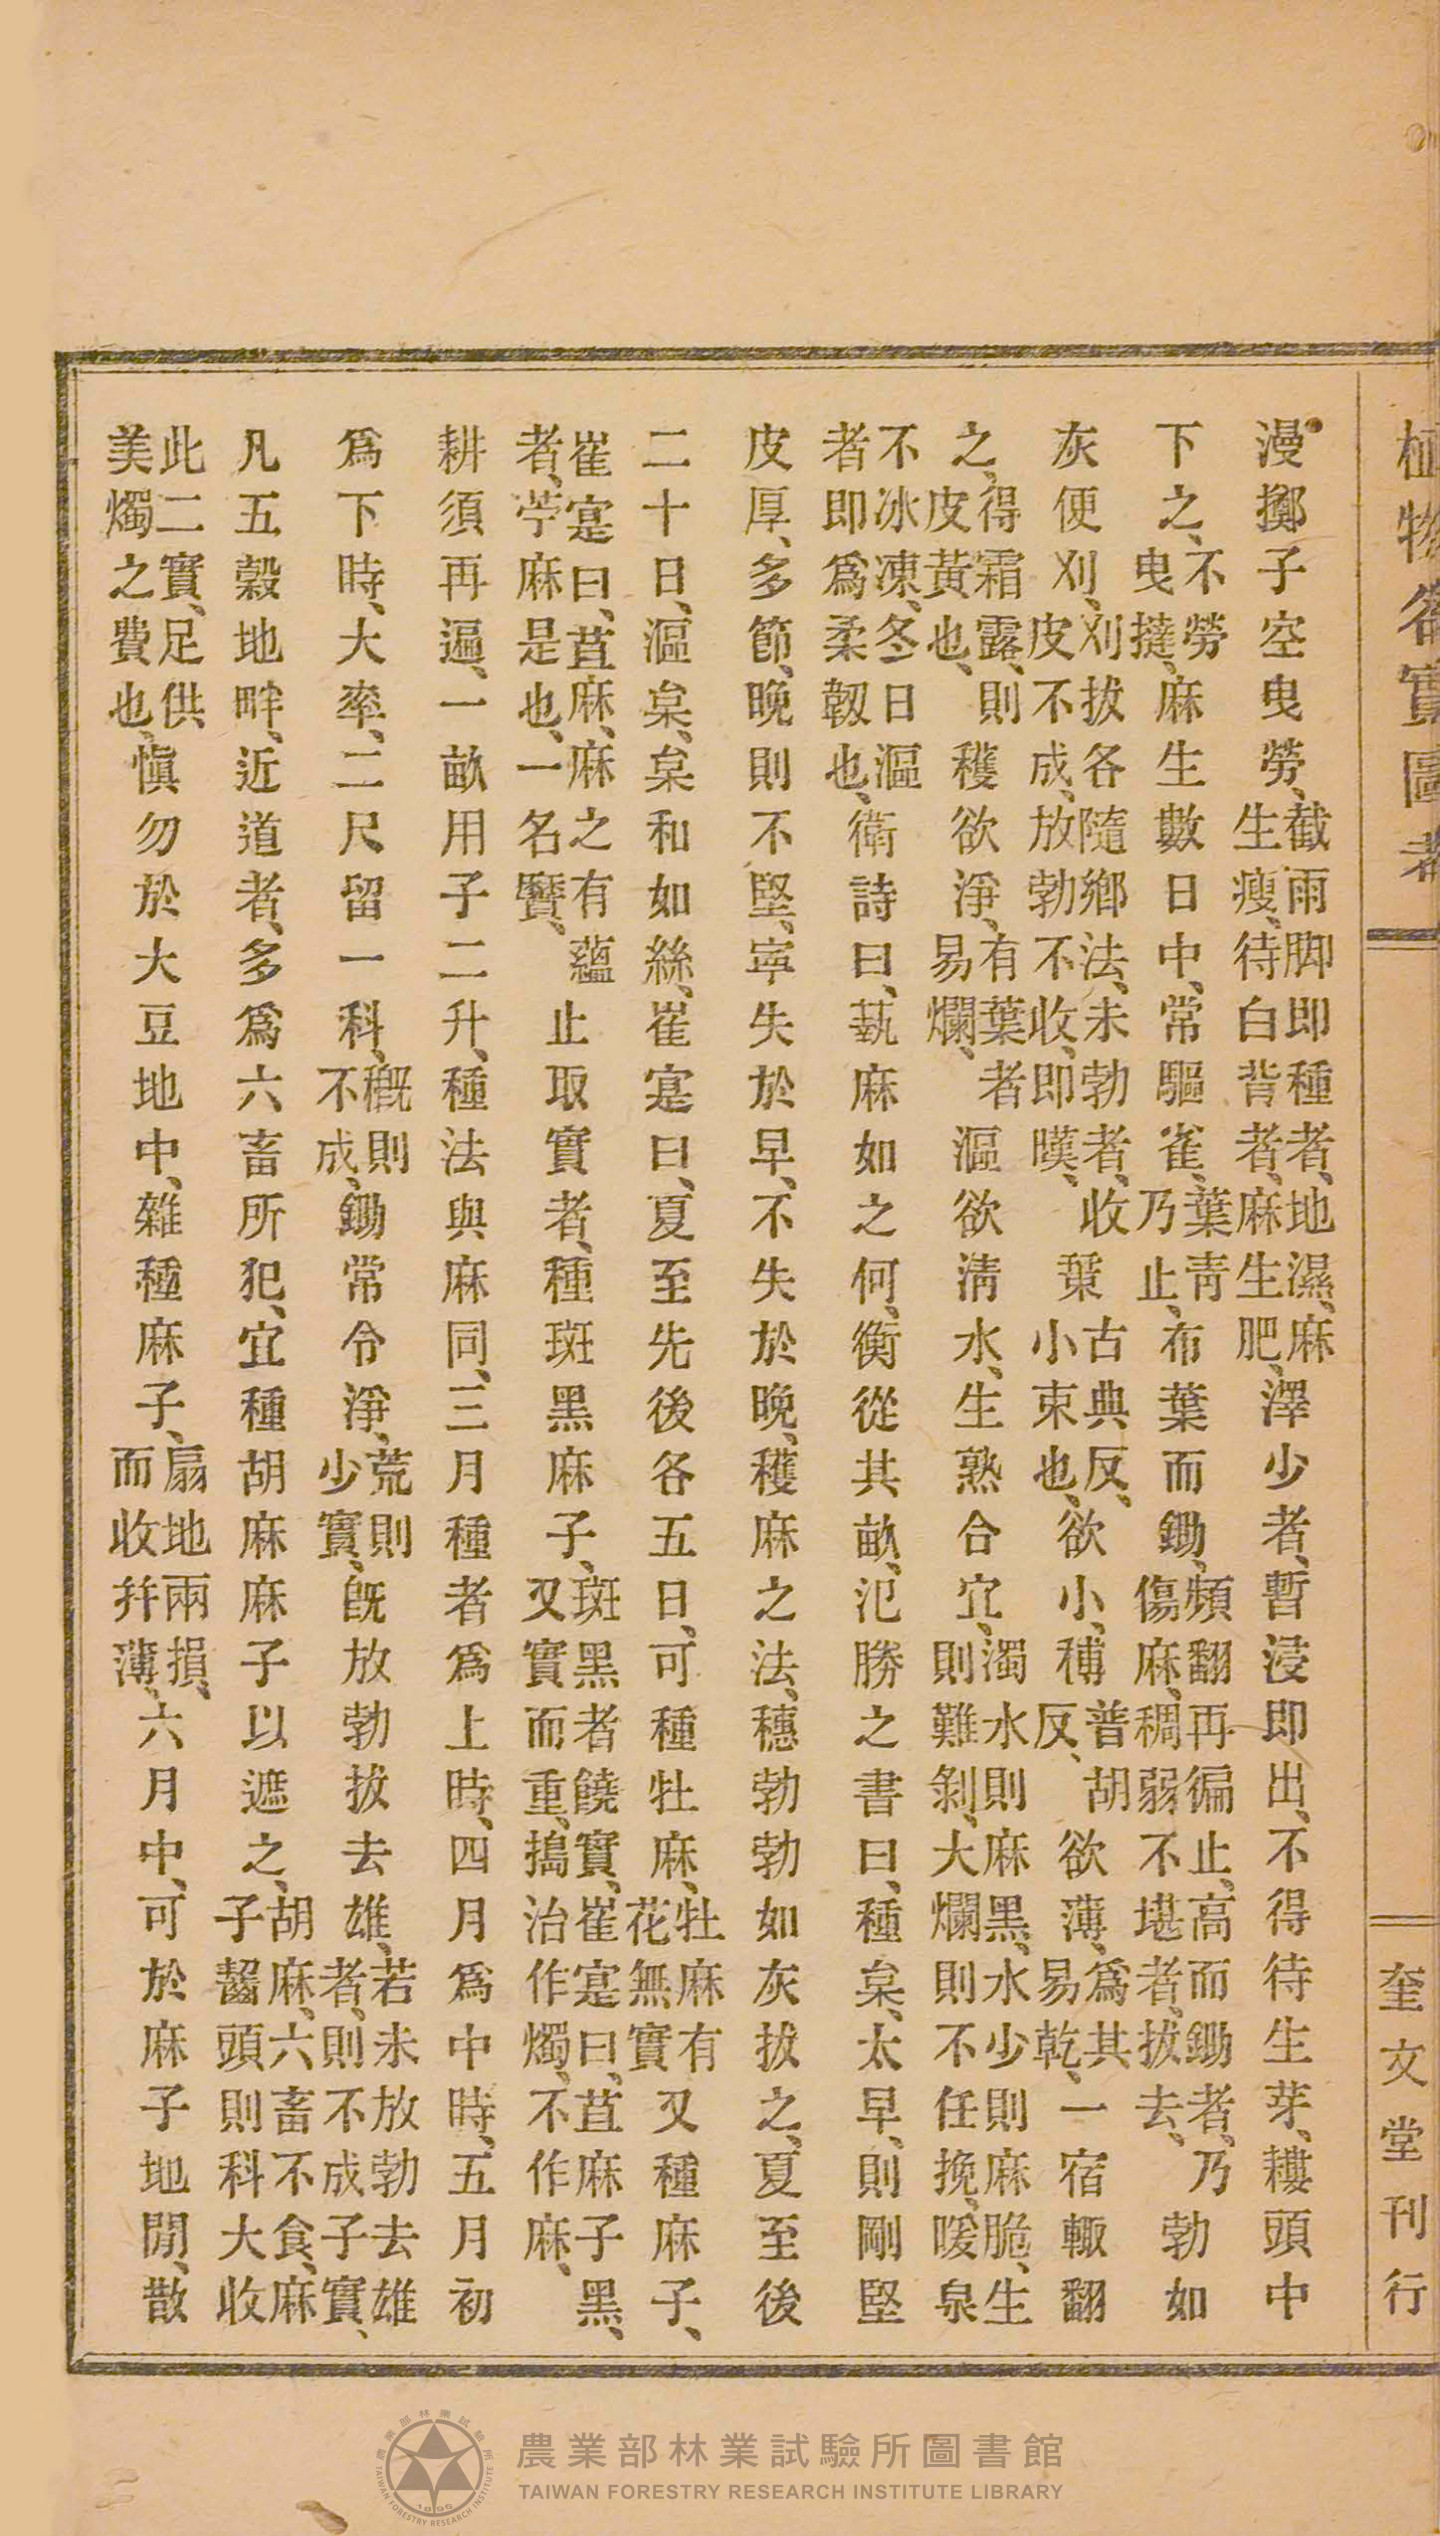 植物名實圖考
奎文堂刊行
漫擲子空曳勞、截雨脚即種者、地濕、麻生瘦、待白背者、麻生肥、澤少者、暫浸即出、不得待生芽、耬頭中
下之、不勞曳撻、麻生數日中、常驅雀、葉青乃止、布葉而鋤、頻翻再徧止、高而鋤者、乃傷麻、稠弱不堪者、拔去、勃如
灰便刈、刈拔各隨鄉法、未勃者、收皮不成、放勃不收、即暵、𦼮古典反、小束也、欲小、䅭普胡反、欲薄、爲其易乾、一宿輙翻
之、得霜露、則皮黃也、穫欲淨、有葉者易爛、漚欲清水、生熟合宜、濁水則麻黑、水少則麻脆、生則難剝、大爛則不任挽、暖泉
不冰凍、冬日漚者即爲柔韌也、衛詩曰、蓺麻如之何、衡從其畝、氾勝之書曰、種枲、太早、則剛堅
皮厚、多節、晚則不堅、寧失於早、不失於晚、穫麻之法、穗勃勃如灰拔之、夏至後
二十日、漚枲、枲和如絲、崔寔曰、夏至先後各五日、可種牡麻、牡麻有花無實又種麻子、
崔寔曰、苴麻、麻之有蘊者、苧麻是也、一名黂、止取實者、種斑黑麻子、斑黑者饒實、崔寔曰、苴麻子黑、又實而重、搗治作燭、不作麻、
耕須再遍、一畝用子二升、種法與麻同、三月種者爲上時、四月爲中時、五月初
爲下時、大率、二尺留一科、穊則不成、鋤常令淨、荒則少實、既放勃拔去雄、若未放勃去雄者、則不成子實、
凡五穀地畔、近道者、多爲六畜所犯、宜種胡麻麻子以遮之、胡麻、六畜不食、麻子齧頭則科大收
此二實、足供美燭之費也、慎勿於大豆地中、雜種麻子、扇地兩損、而收幷薄、六月中、可於麻子地間、散
農業部林業試驗所圖書館
TAIWAN FORESTRY RESEARCH INSTITUTE LIBRARY
農業部林業試驗所
TAIWAN FORESTRY RESEARCH INSTITUTE
1896